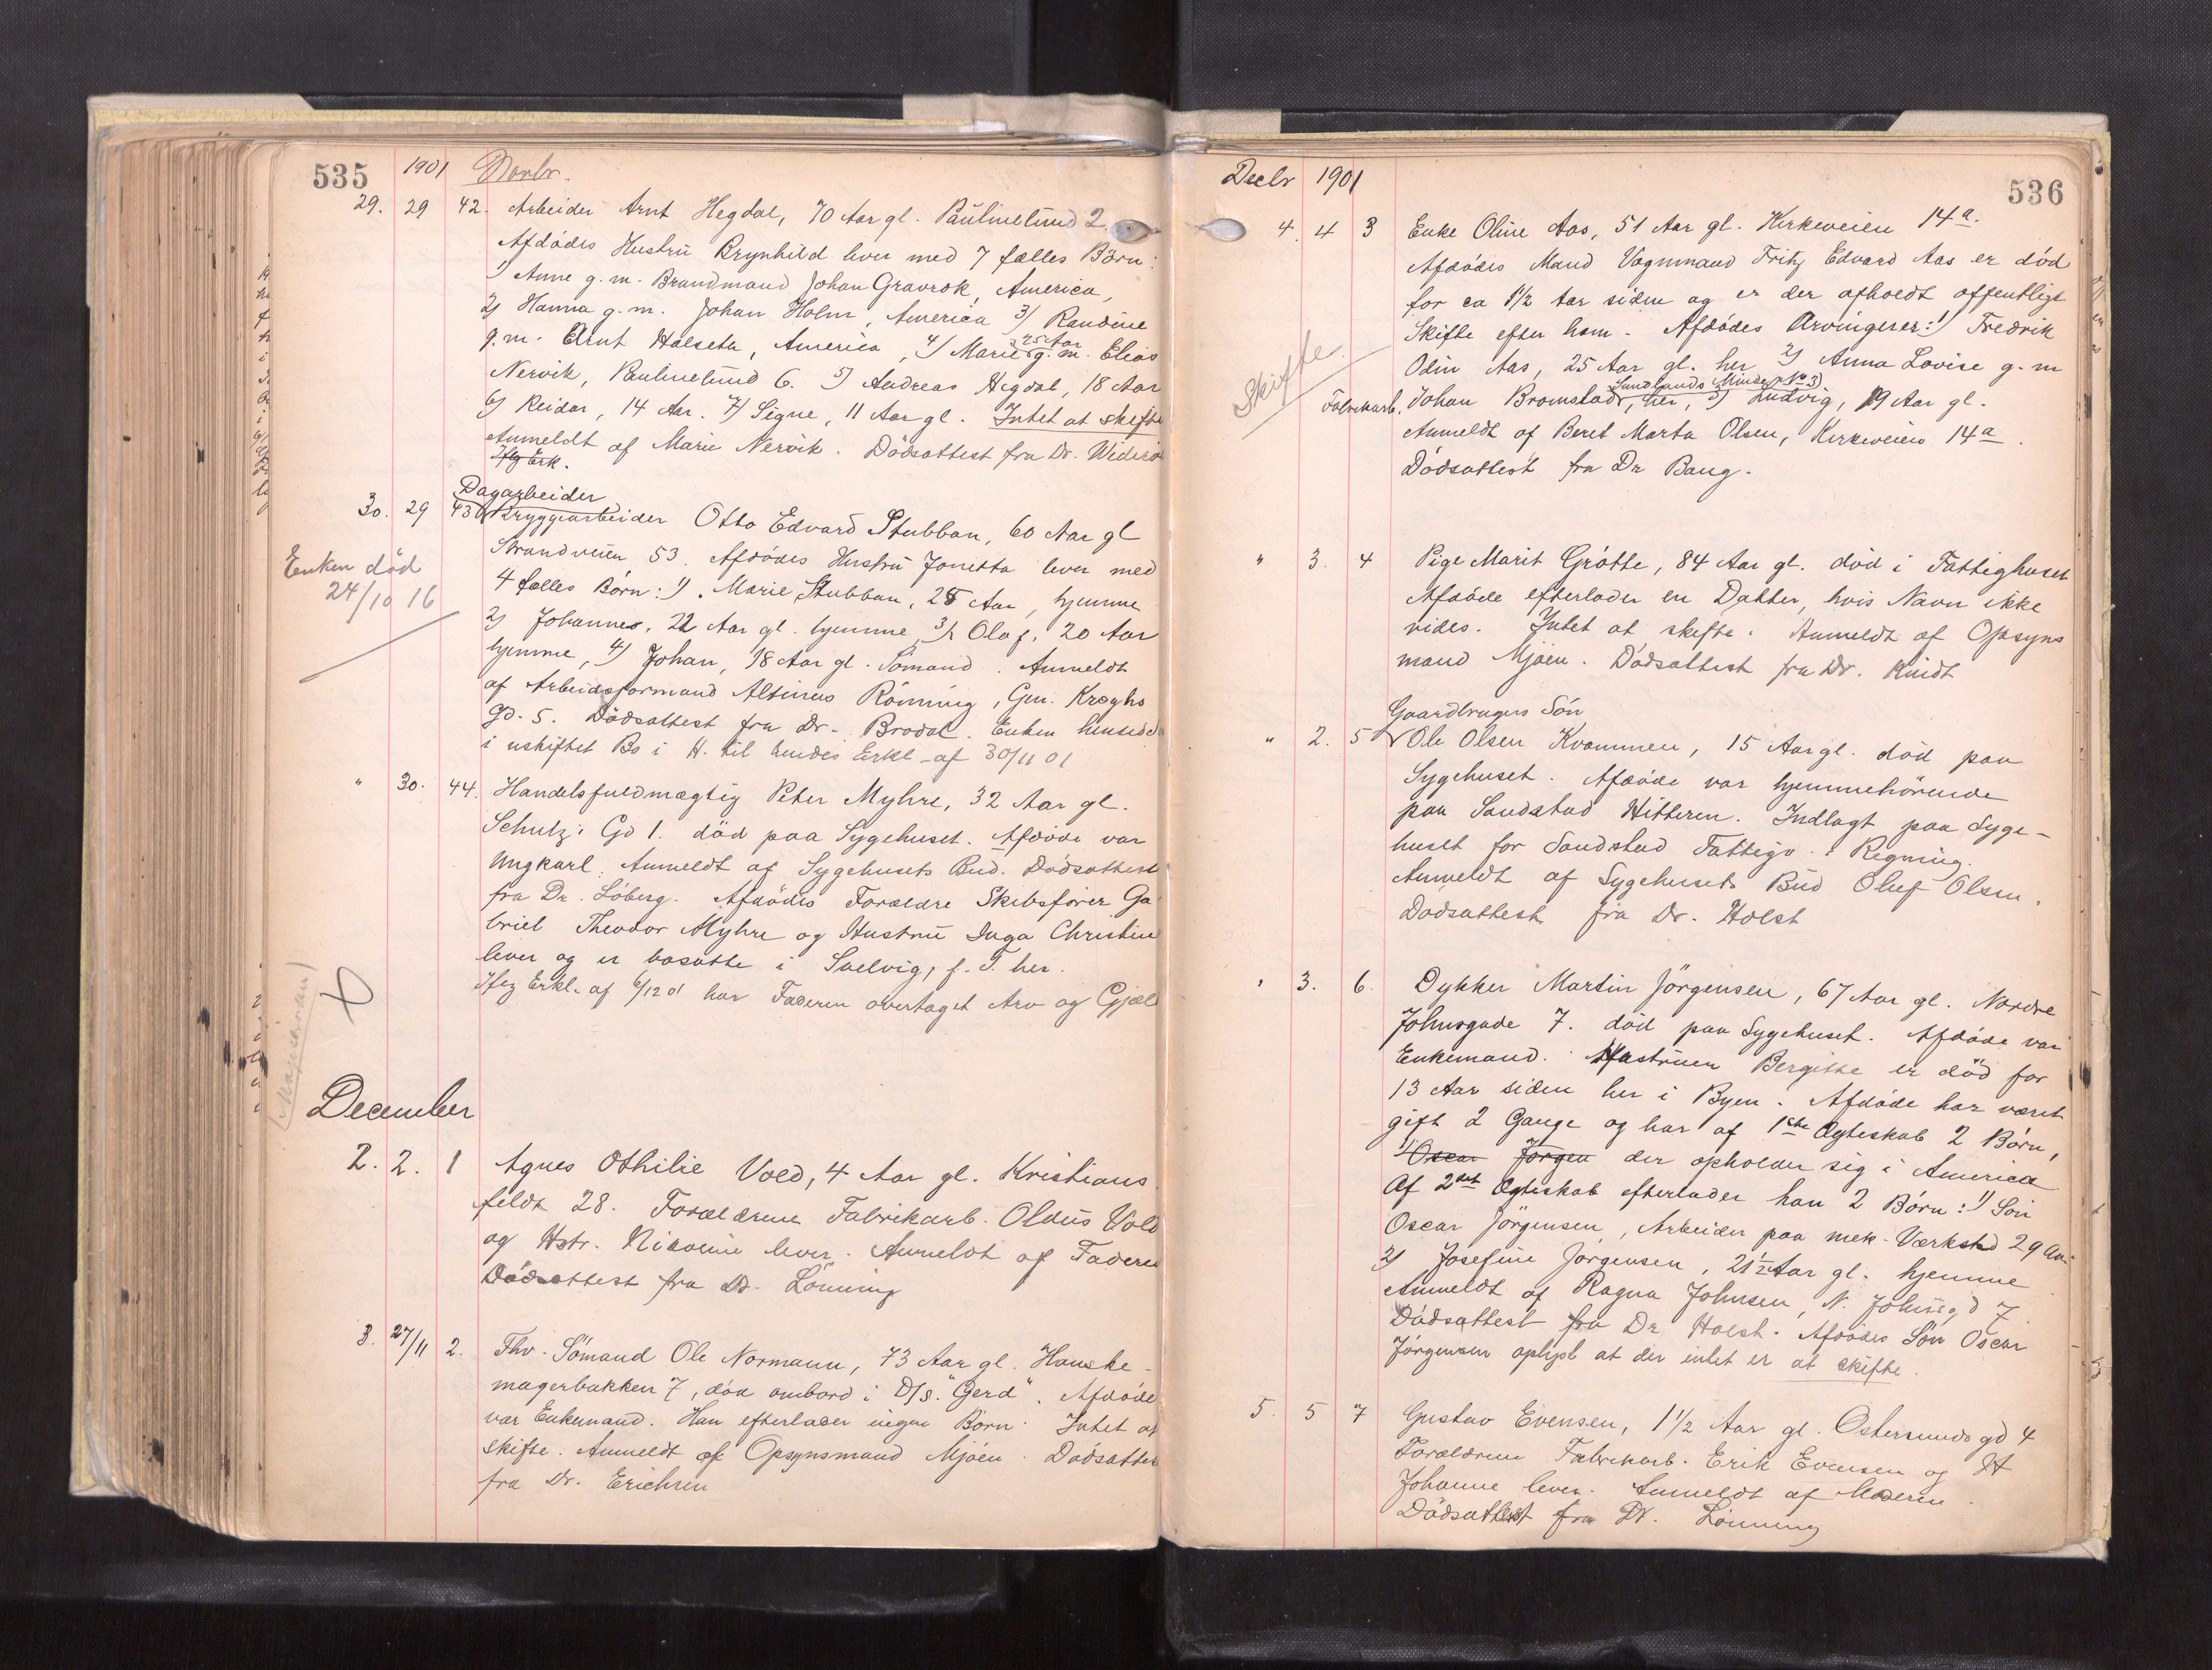 535 1901 Novbr.
29. 29 42. Arbeider Arnt Hegdal, 70 Aar gl. Paulinelund 2.
Afdödes Hustru Brynhild lever med 7 fælles Börn:
1) Anne g.m. Brandmand Johan Gravrok, America,
2) Hanna g.m. Johan Holm, America 3) Randine
g.m. Arnt Halseth, America, 4) Marie 25 Aar g.m. Elias
Nervik, Paulinelund 6. 5) Andreas Hegdal, 18 Aar
6) Reidar, 14 Aar. 7) Signe, 11 Aar gl. Intet at skifte
Anmeldt af Marie Nervik. Dödsattest fra Dr. Widerö
Ifg Erk.
Dagarbeider
30. 29 43 Bryggearbeider Otto Edvard Stubban, 60 Aar gl
Strandveien 53. Afdödes Hustru Jonetta lever med
Enken död
24/10 16
4 fælles Börn: 1) Marie Stubban, 25 Aar, hjemme
2) Johannes, 22 Aar gl. hjemme, 3) Olaf, 20 Aar
hjemme, 4) Johan, 18 Aar gl. Sömand. Anmeldt
af Arbeidsformand Altinius Rönning, Gen. Kroghs
Gd. 5. Dödsattest fra Dr. Brodal. Enken hensidd
i uskiftet Bo i H. til hendes Erkl. af 30/11 01
" 30. 44. Handelsfuldmægtig Peter Myhre, 32 Aar gl.
Schulz's Gd 1. död paa Sygehuset. Afdöde var
Ungkarl. Anmeldt af Sygehusets Bud. Dödsattest
fra Dr. Löberg. Afdödes Forældre Skibsförer Ga
briel Theodor Myhre og Hustru Inga Christine
lever og er bosatte i Svelvig, f. T. her.
Ifg Erkl. af 6/12 01 har Faderen overtaget Arv og Gjæld
December
2. 2. 1 Agnes Othilie Vold, 4 Aar gl. Kristians
feldt 28. Forældrene Fabrikarb. Oldus Vold
og Hstr. Nicoline lever. Anmeldt af Faderen
Dödsattest fra Dr. Lönning
3. 27/11 2. Fhv. Sömand Ole Normann, 73 Aar gl. Hanske-
magerbakken 7, död ombord i D/S. "Gerd". Afdöde
var Enkemand. Han efterlader ingen Börn. Intet at
skifte. Anmeldt af Opsynsmand Mjöen. Dödsattest
fra Dr. Erichsen
Decbr 1901 536
4. 4 3 Enke Oline Aas, 51 Aar gl. Kirkeveien 14a.
Afdödes Mand Vognmand Fritz Edvard Aas er död
for ca 1 1/2 Aar siden og er der afholdt offentligt
Skifte efter ham. Afdödes Arvinger er: 1) Fredrik
Skifte
Odin Aas, 25 Aar gl. her 2) Anna Lovise g.m
Sundlands Minde No 3)
Fabrikarb. Johan Bromstad, her, 3) Ludvig, 19 Aar gl.
Anmeldt af Beret Marta Olsen, Kirkeveien 14a.
Dödsattest fra Dr Bang.
" 3. 4 Pige Marit Grötte, 84 Aar gl. död i Fattighuset
Afdöde efterlader en Datter, hvis Navn ikke
vides. Intet at skifte. Anmeldt af Opsyns
mand Mjöen. Dödsattest fra Dr. Kindt
Gaardbrugers Sön
" 2. 5 Ole Olsen Kvammen, 15 Aar gl. död paa
Sygehuset. Afdöde var hjemmehörende
paa Sandstad Hitteren. Indlagt paa Syge-
huset for Sandstad Fattigv.s Regning.
Anmeldt af Sygehusets Bud Oluf Olsen.
Dödsattest fra Dr. Holst
" 3. 6. Dykker Martin Jörgensen, 67 Aar gl. Nordre
Johnsgade 7. död paa Sygehuset. Afdöde var
Enkemand. Hustruen Bergitte er död for
13 Aar siden her i Byen. Afdöde har været
gift 2 Gange og har af 1ste Ægteskab 2 Börn,
1) Oscar Jörgen der opholder sig i America
Af 2det Ægteskab efterlader han 2 Börn: 1) Sön
Oscar Jörgensen, Arbeider paa mek. Værksted 29 Aar
2) Josefine Jörgensen, 21 1/2 Aar gl. hjemme
Anmeldt af Ragna Johnsen, N. Johnsgd 7.
Dödsattest fra Dr Holst. Afdödes Sön Oscar
Jörgensen oplyst at der intet er at skifte.
5. 5 7 Gustav Evensen, 1 1/2 Aar gl. Ostersunds gd 4
Forældrene Fabrikarb. Erik Evensen og H
Johanne lever. Anmeldt af Moderen.
Dödsattest fra Dr. Lönning